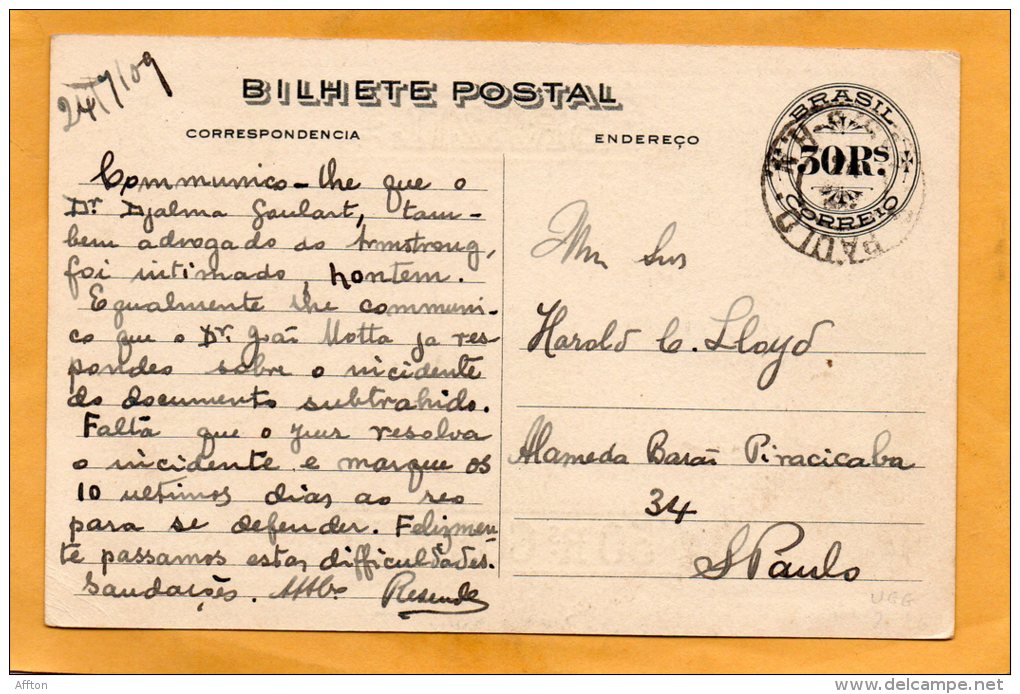 24/7/09
BILHETE POSTAL
CORRESPONDENCIA
ENDEREÇO
BRASIL
30 Rs.
CORREIO
PAULO
Communico-lhe que o
Dr Djalma Goulart, tam-
bem advogado do Armstrong,
foi intimado, hontem.
Egualmente lhe communi-
co que o Dr. João Motta ja res
pondeo sobre o incidente
do documento subtrahido.
Falta que o juiz resolva
o incidente e marque os
10 ultimos dias ao reo
para se defender. Felizmen
te passamos estas difficuldades.
Saudações. Resende
Harold C. Lloyd
Alameda Barão Piracicaba
34
S Paulo
Affton
http://www.delcampe.net